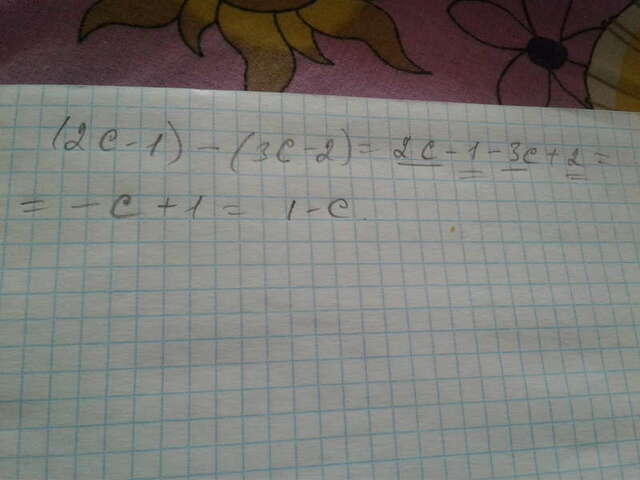 (2c-1)-(3c-2)=2c-1-3c+2=
=-c+1=1-c.